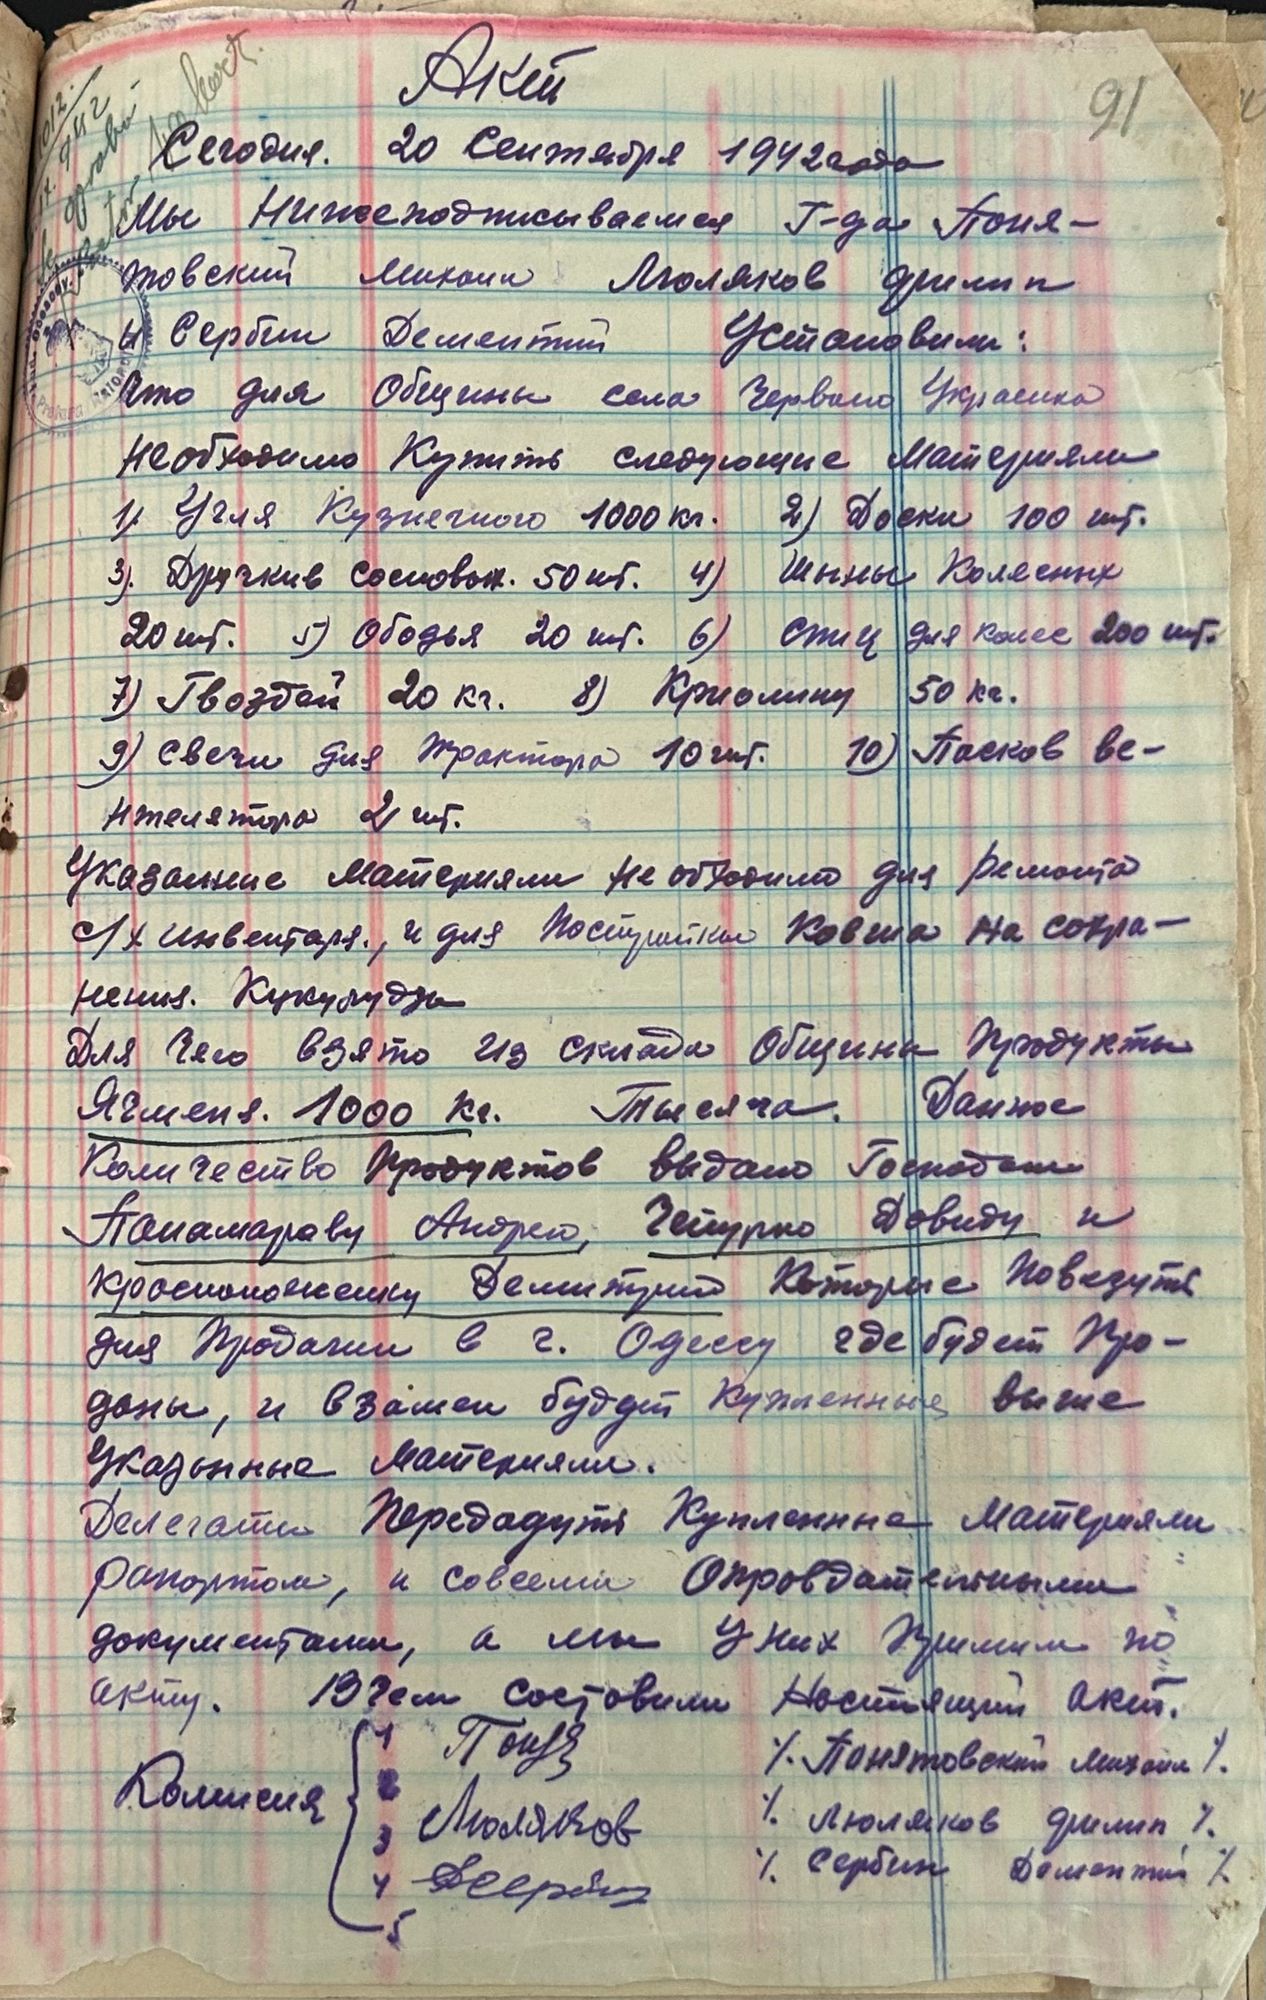 91
Акт
Сегодня. 20 Сентября 1942 года
Мы Нижеподписываемся Г-да Поня-
товский Михаил Люляков Филип
и Сербин Дементий Установили:
Что для Общины села Червоно Украинка
необходимо Купить следующие Материяли
1) Угля Кузнечного 1000 кг. 2) Доски 100 шт.
3). Дручкив сосновых. 50 шт. 4) Шины Колесных
20 шт. 5) Ободья 20 шт. 6) Спиц для колес 200 шт.
7) Гвоздей 20 кг. 8) Криолину 50 кг.
9) Свечи для трактора 10 шт. 10) Пасков ве-
нтелятора 2 шт.
Указание Материяли необходимо для ремонта
с/х инвентаря., и для Постройки Ковша на сохра-
нения. Кукурудзы
Для чего взято из склада Общины Продукты
Ячменя. 1000 кг. Тысяча. Данное
Количество Продуктов выдано Господам
Панамараву Андрею, Чепурно Давиду и
Красноложенку Демитрию Которые Повезуть
для Продажи в г. Одессу где будет Про-
даны, и взамен будет Купленные выше
Указынные Материяли.
Делегати Передадуть Купленные Материяли
рапортом, и совсеми Оправдательными
документами, а мы У них Примим по
акту. В Чем составили Настоящий акт.
Комисия
1 Поня %. Панятовский Михаил %.
2
3 Люляков %. Люляков Филип %.
4 %. Сербин Дементий %
5